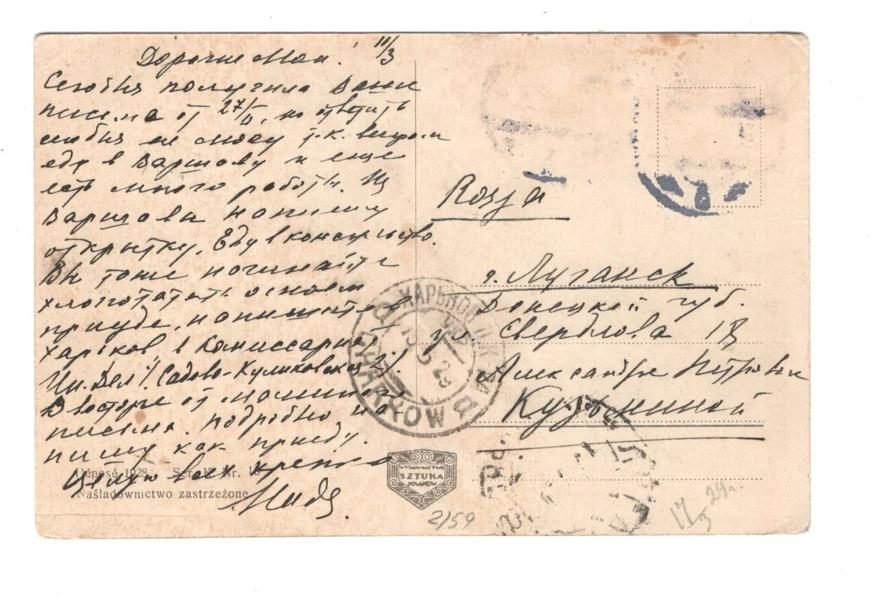 Дорогие Мои! 11/3
Сегодня получила Ваши
письма от 27/II, но ответить
сегодня не могу т.к. вечером
еду в Варшаву и еще
есть много работы. Из
Варшавы напишу
открытку. Еду в консульство.
Вы тоже начинайте
хлопотать о моем
приезде, напишите
Харьков в Комиссариат
Ин. Дел, Садово-Куликовская
В восторге от
письма. Подробно на-
пишу как приеду.
Целую всех крепко
Déposé 1928. Nr.
Naśladownictwo zastrzeżone
WYDAWNICTWO
SZTUKA
KRAKÓW
2/59
Rosja
г. Луганск
Донецкой губ.
ул. Свердлова
Александре Петровне
Кузьминой
ХАРЬКОВ
KHARKOW
17/3 29г.